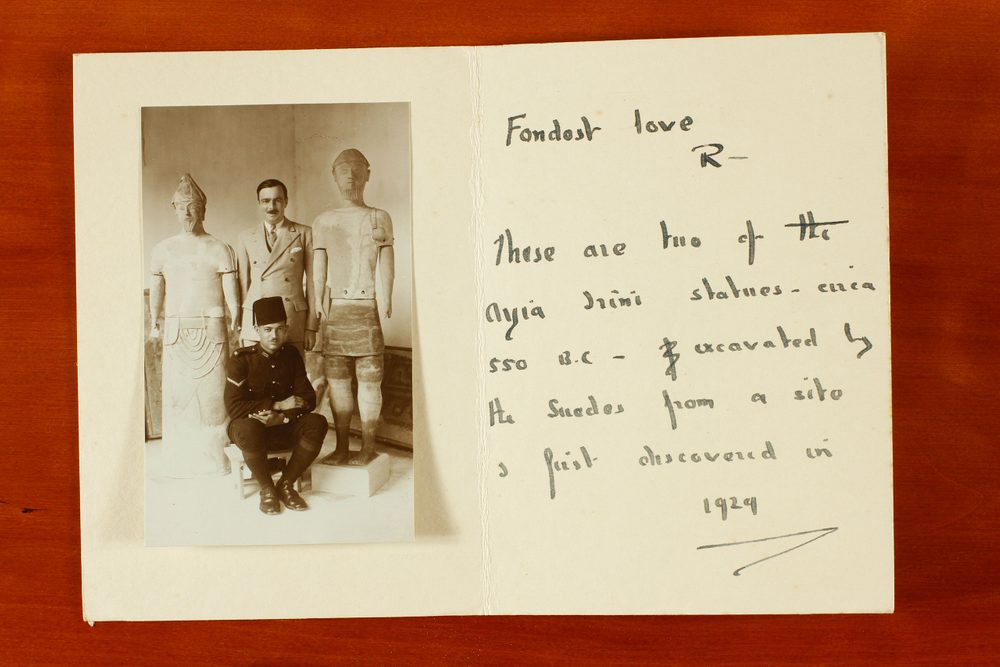 Fondest love
R-
These are two of the
Ayia Irini statues - circa
550 B.C - excavated by
the Swedes from a site
I first discovered in
1929